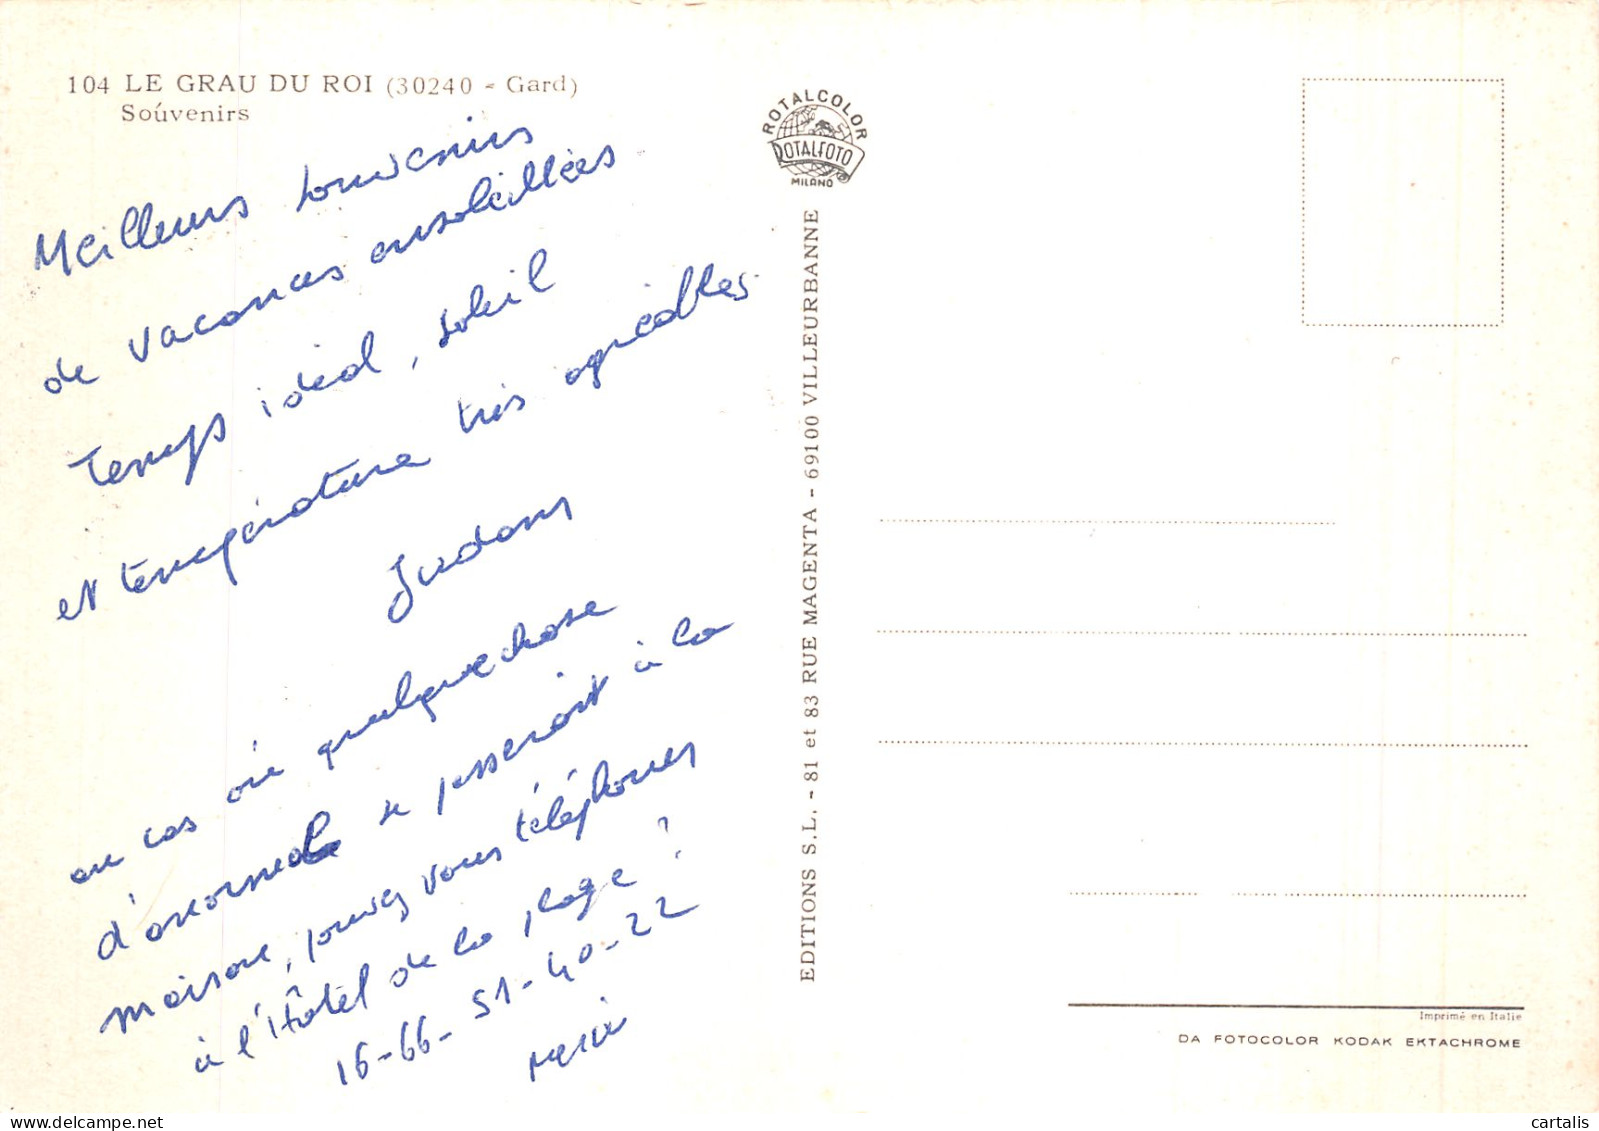 104 LE GRAU DU ROI (30240 - Gard)
Souvenirs
Meilleurs souvenirs
de vacances ensoleillées
Temps idéal, soleil
et température très agréables
au cas où quelque chose
d'anormal se passerait à la
maison, pouvez vous téléphoner
à l'Hôtel de la plage ?
16-66-51-40-22
merci
ROTALCOLOR
ROTALFOTO
MILANO
EDITIONS S.L. - 81 et 83 RUE MAGENTA - 69100 VILLEURBANNE
Imprimé en Italie
DA FOTOCOLOR KODAK EKTACHROME
cartalis